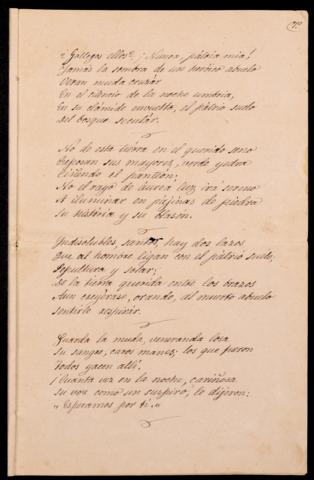 7.
«Gallegos ellos? ¡Nunca, pátria mia!
Jamás la sombra de un heróico abuelo
Veran muda cruzár
En el silencio de la noche umbria,
En su clámide envuelta, el pátrio suelo
Del bosque seculár.
No de esta tierra en el querido seno
Reposan sus mayores, verde yedra
Ciñendo el panteón;
No el rayo de áurea luz irá sereno
A iluminar en páginas de piedra
Su história y su blasón.
Indisolubles, santos, hay dos lazos
Que al hombre ligan con el pátrio suelo;
Sepultura y solar;
De la tierra querida entre los brazos
Aun creyérase, orando, al muerto abuelo
sentirle respirár.
Guarda la muda, veneranda losa
Su sangre, caros manes; los que fueron
Todos yacen allí.
¡Cuánta vez en la noche, cariñosa
Su voz como un suspiro, le dijeron:
«Esperamos por tí.»